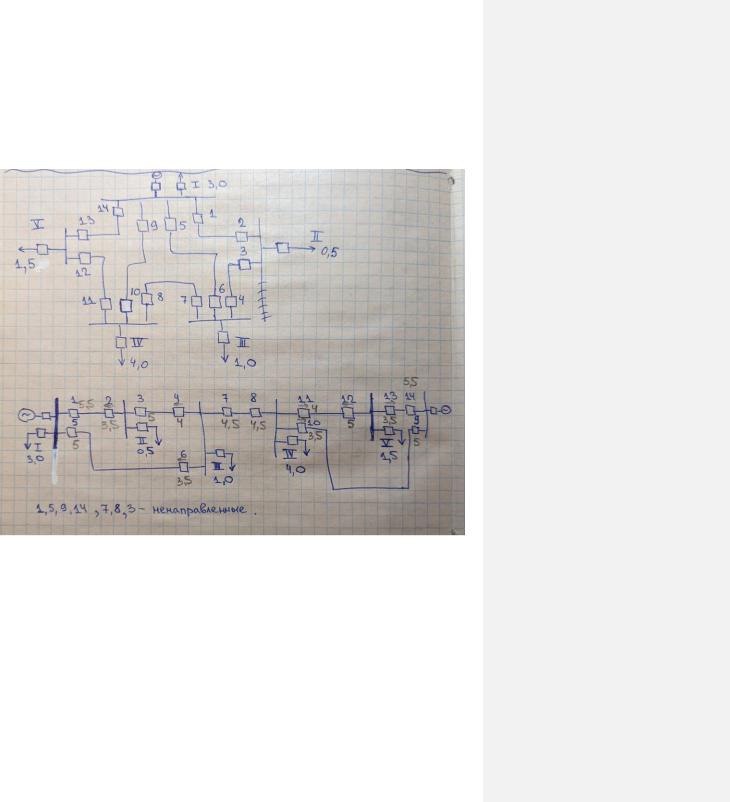 I 3,0
14
9
5
1
V
13
2
II
3
0,5
1,5
12
10
8
6
11
7
4
IV
III
4,0
1,0
5,5
1 5,5 2 3 4 7 8 11 12 13 14
3,5 5 4 4,5 4,5 4 5 3,5
5 10 9
5 3,5 5
I II V
3,0 0,5 1,5
6 III IV
3,5 1,0 4,0
1,5,9,14 , 7,8,3 - ненаправленные .